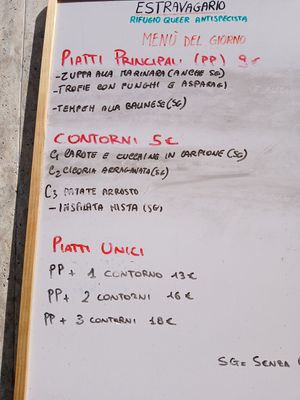 ESTRAVAGARIO
RIFUGIO QUEER ANTISPECISTA
MENÙ DEL GIORNO
PIATTI PRINCIPALI (PP) 9€
-ZUPPA ALLA MARINARA (ANCHE SG)
-TROFIE CON FUNGHI E ASPARAGI
-TEMPEH ALLA BALINESE (SG)
CONTORNI 5€
C1 CAROTE E ZUCCHINE IN CARPIONE (SG)
C2 CICORIA ARRAGANATA (SG)
C3 PATATE ARROSTO
- INSALATA MISTA (SG)
PIATTI UNICI
PP + 1 CONTORNO 13€
PP + 2 CONTORNI 16€
PP + 3 CONTORNI 18€
SG= SENZA